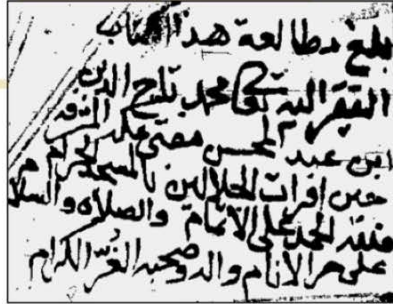 بلغ مطالعة هذا الكتاب
الفقير اليه تعالى محمد تاج الدين
ابن عبد المحسن مفتى مكة المشرفة
حين اقرات الجلالين بالمسجد الحرام
فلله الحمد على الاتمام والصلاه والسلام
على خير الانام واله وصحبه الغر الكرام